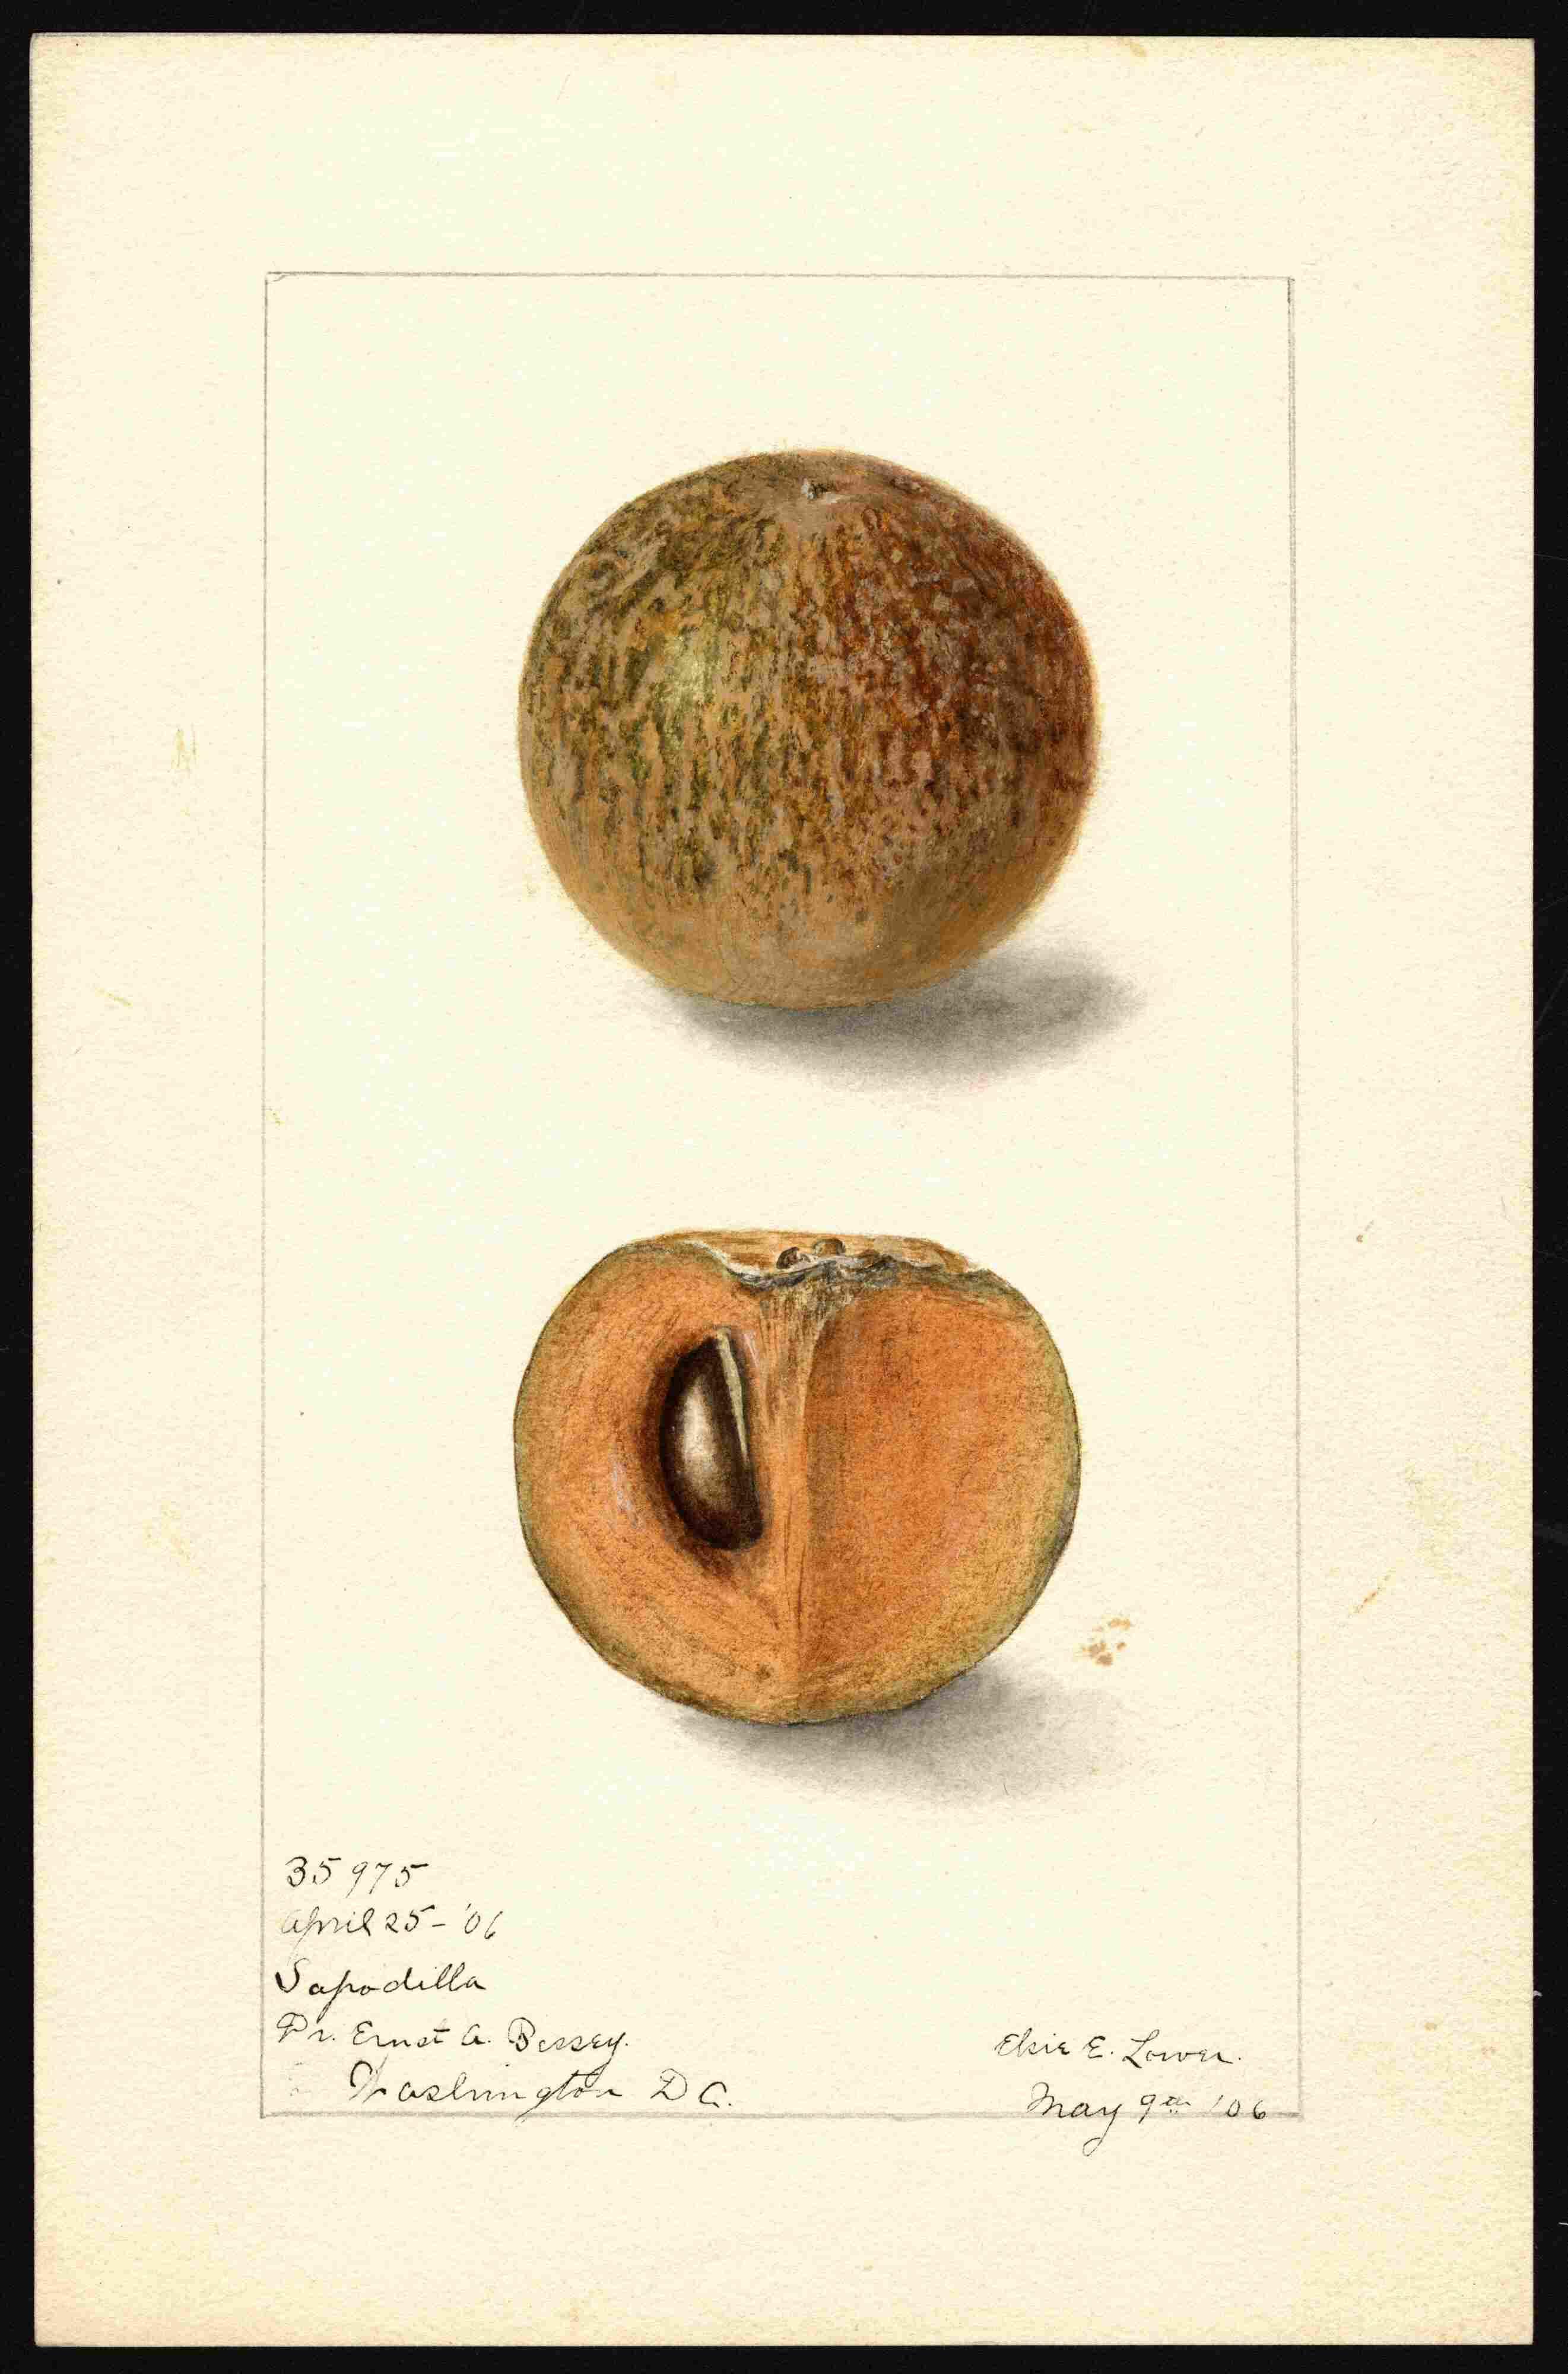 35975
April 25-'06
Sapodilla
Dr. Ernst A. Bessey.
Washington D C.
Elsie E. Lower.
May 9th '06